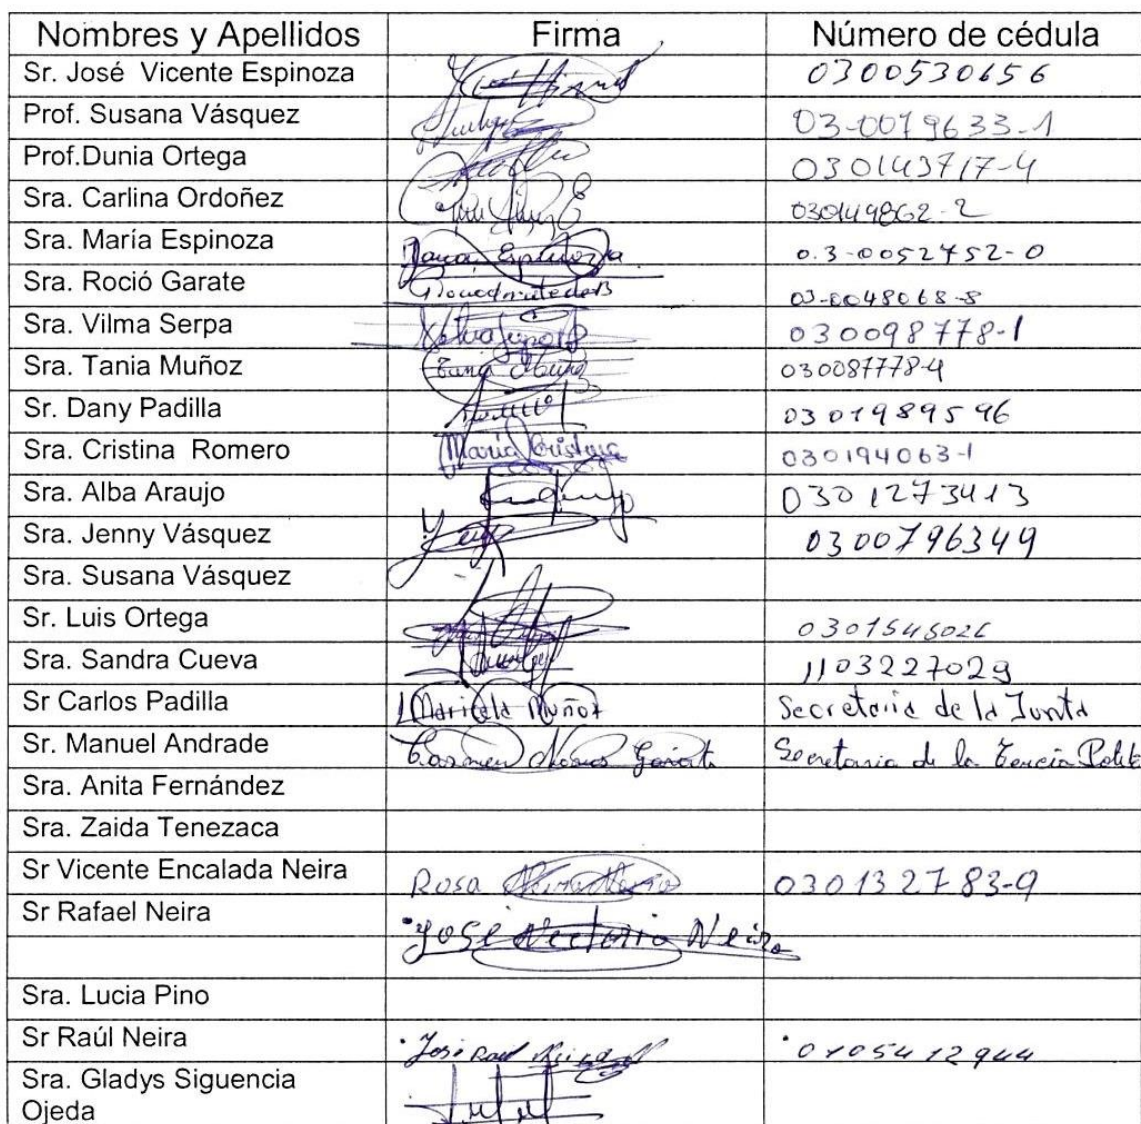 Nombres y Apellidos Firma Número de cédula
Sr. José Vicente Espinoza 0300530656
Prof. Susana Vásquez 03-0079633-1
Prof.Dunia Ortega 030143717-4
Sra. Carlina Ordoñez 030149862-2
Sra. María Espinoza María Espinoza 0.3-0052752-0
Sra. Roció Garate 03-0048068-8
Sra. Vilma Serpa 030098778-1
Sra. Tania Muñoz Tania Muñoz 030087778-4
Sr. Dany Padilla 0301989596
Sra. Cristina Romero María Cristina 030194063-1
Sra. Alba Araujo 0301273413
Sra. Jenny Vásquez 0300796349
Sra. Susana Vásquez
Sr. Luis Ortega
Sra. Sandra Cueva 1103227029
Sr Carlos Padilla Maricela Muñoz Secretaria de la Junta
Sr. Manuel Andrade Carmen Garate Secretaria de la
Sra. Anita Fernández
Sra. Zaida Tenezaca
Sr Vicente Encalada Neira Rosa 030132783-9
Sr Rafael Neira José Neira
Sra. Lucia Pino
Sr Raúl Neira José Raul 0105412944
Sra. Gladys Siguencia
Ojeda